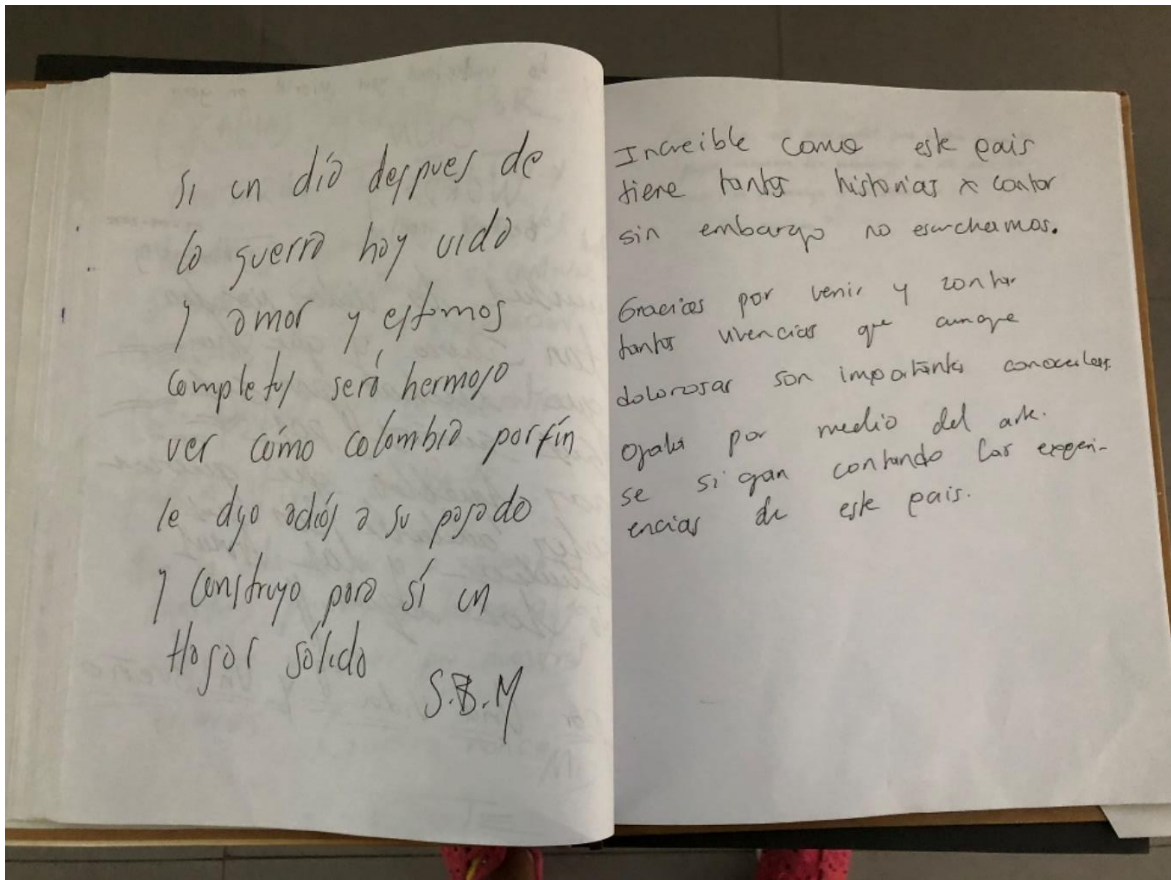 Si un día despues de
la guerra hay vida
y amor y estamos
completos será hermoso
ver cómo Colombia por fín
le dijo adiós a su pasado
y construyo para sí un
Hogar sólido
S.B.M
Increible como este pais
tiene tantas historias x contar
sin embargo no escuchamos.
Gracias por venir y contar
tantas vivencias que aunque
dolorosas son importantes conocerlas.
Ojala por medio del arte.
se sigan contando las experi-
encias de este pais.